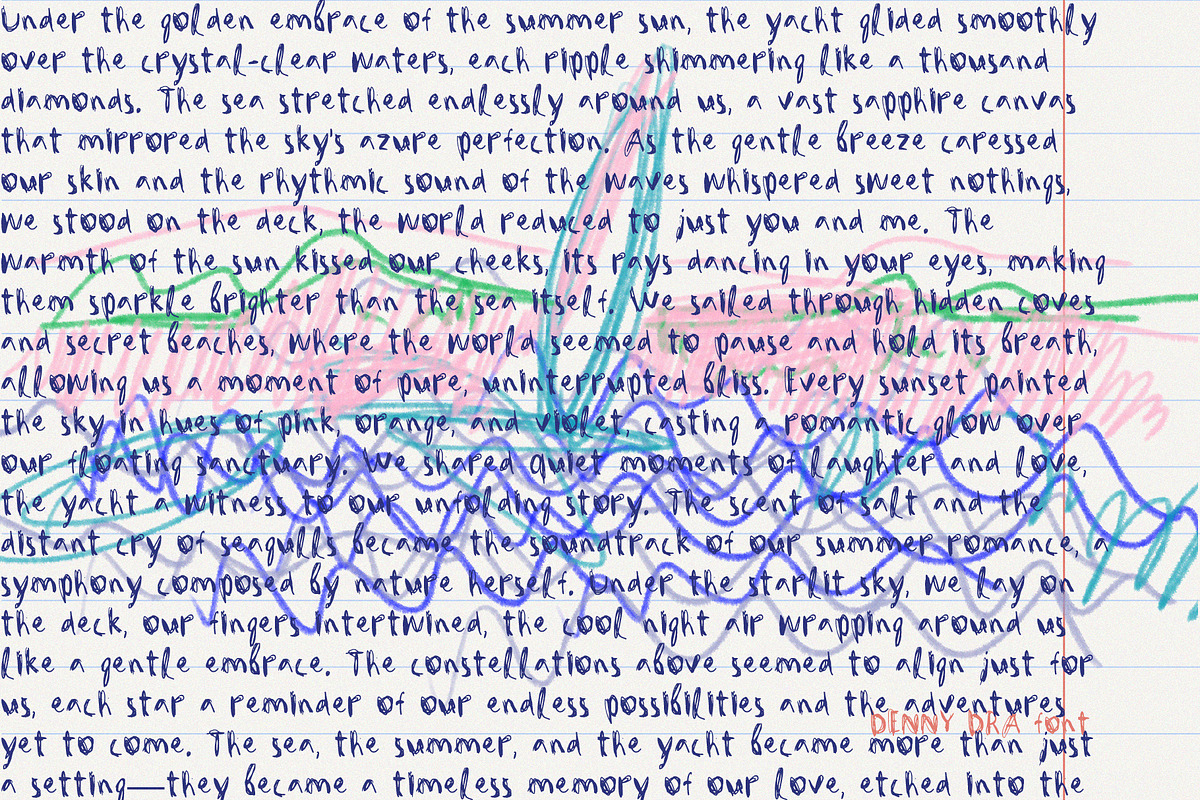 Under the golden embrace of the summer sun, the yacht glided smoothly
over the crystal-clear waters, each ripple shimmering like a thousand
diamonds. The sea stretched endlessly around us, a vast sapphire canvas
that mirrored the sky's azure perfection. As the gentle breeze caressed
our skin and the rhythmic sound of the waves whispered sweet nothings,
we stood on the deck, the world reduced to just you and me. The
warmth of the sun kissed our cheeks, its rays dancing in your eyes, making
them sparkle brighter than the sea itself. We sailed through hidden coves
and secret beaches, where the world seemed to pause and hold its breath,
allowing us a moment of pure, uninterrupted bliss. Every sunset painted
the sky in hues of pink, orange, and violet, casting a romantic glow over
our floating sanctuary. We shared quiet moments of laughter and love,
the yacht a witness to our unfolding story. The scent of salt and the
distant cry of seagulls became the soundtrack of our summer romance, a
symphony composed by nature herself. Under the starlit sky, we lay on
the deck, our fingers intertwined, the cool night air wrapping around us
like a gentle embrace. The constellations above seemed to align just for
us, each star a reminder of our endless possibilities and the adventures
DENNY DRA font
yet to come. The sea, the summer, and the yacht became more than just
a setting—they became a timeless memory of our love, etched into the